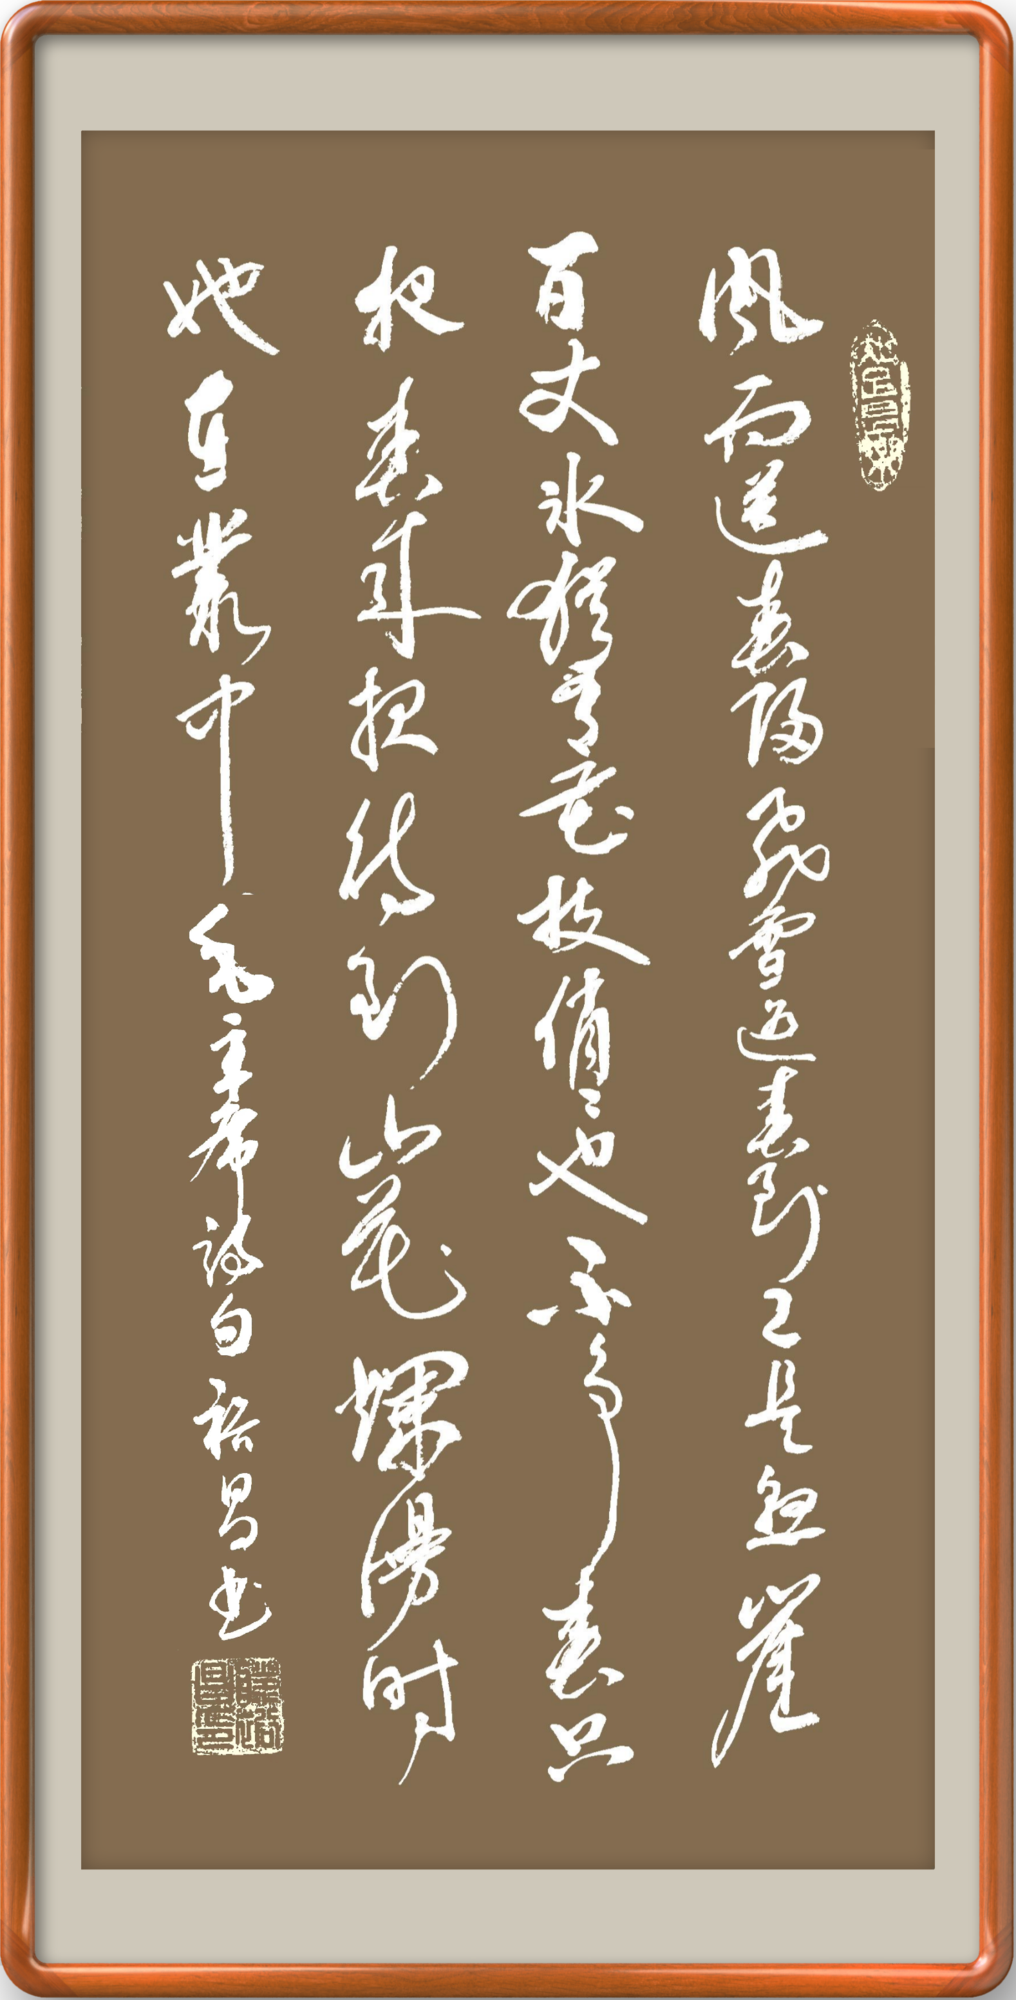 风雨送春归飞雪迎春到已是悬崖
百丈冰犹有花枝俏俏也不争春只
把春来报待到山花烂漫时
她在叢中毛主席诗句裕昌书